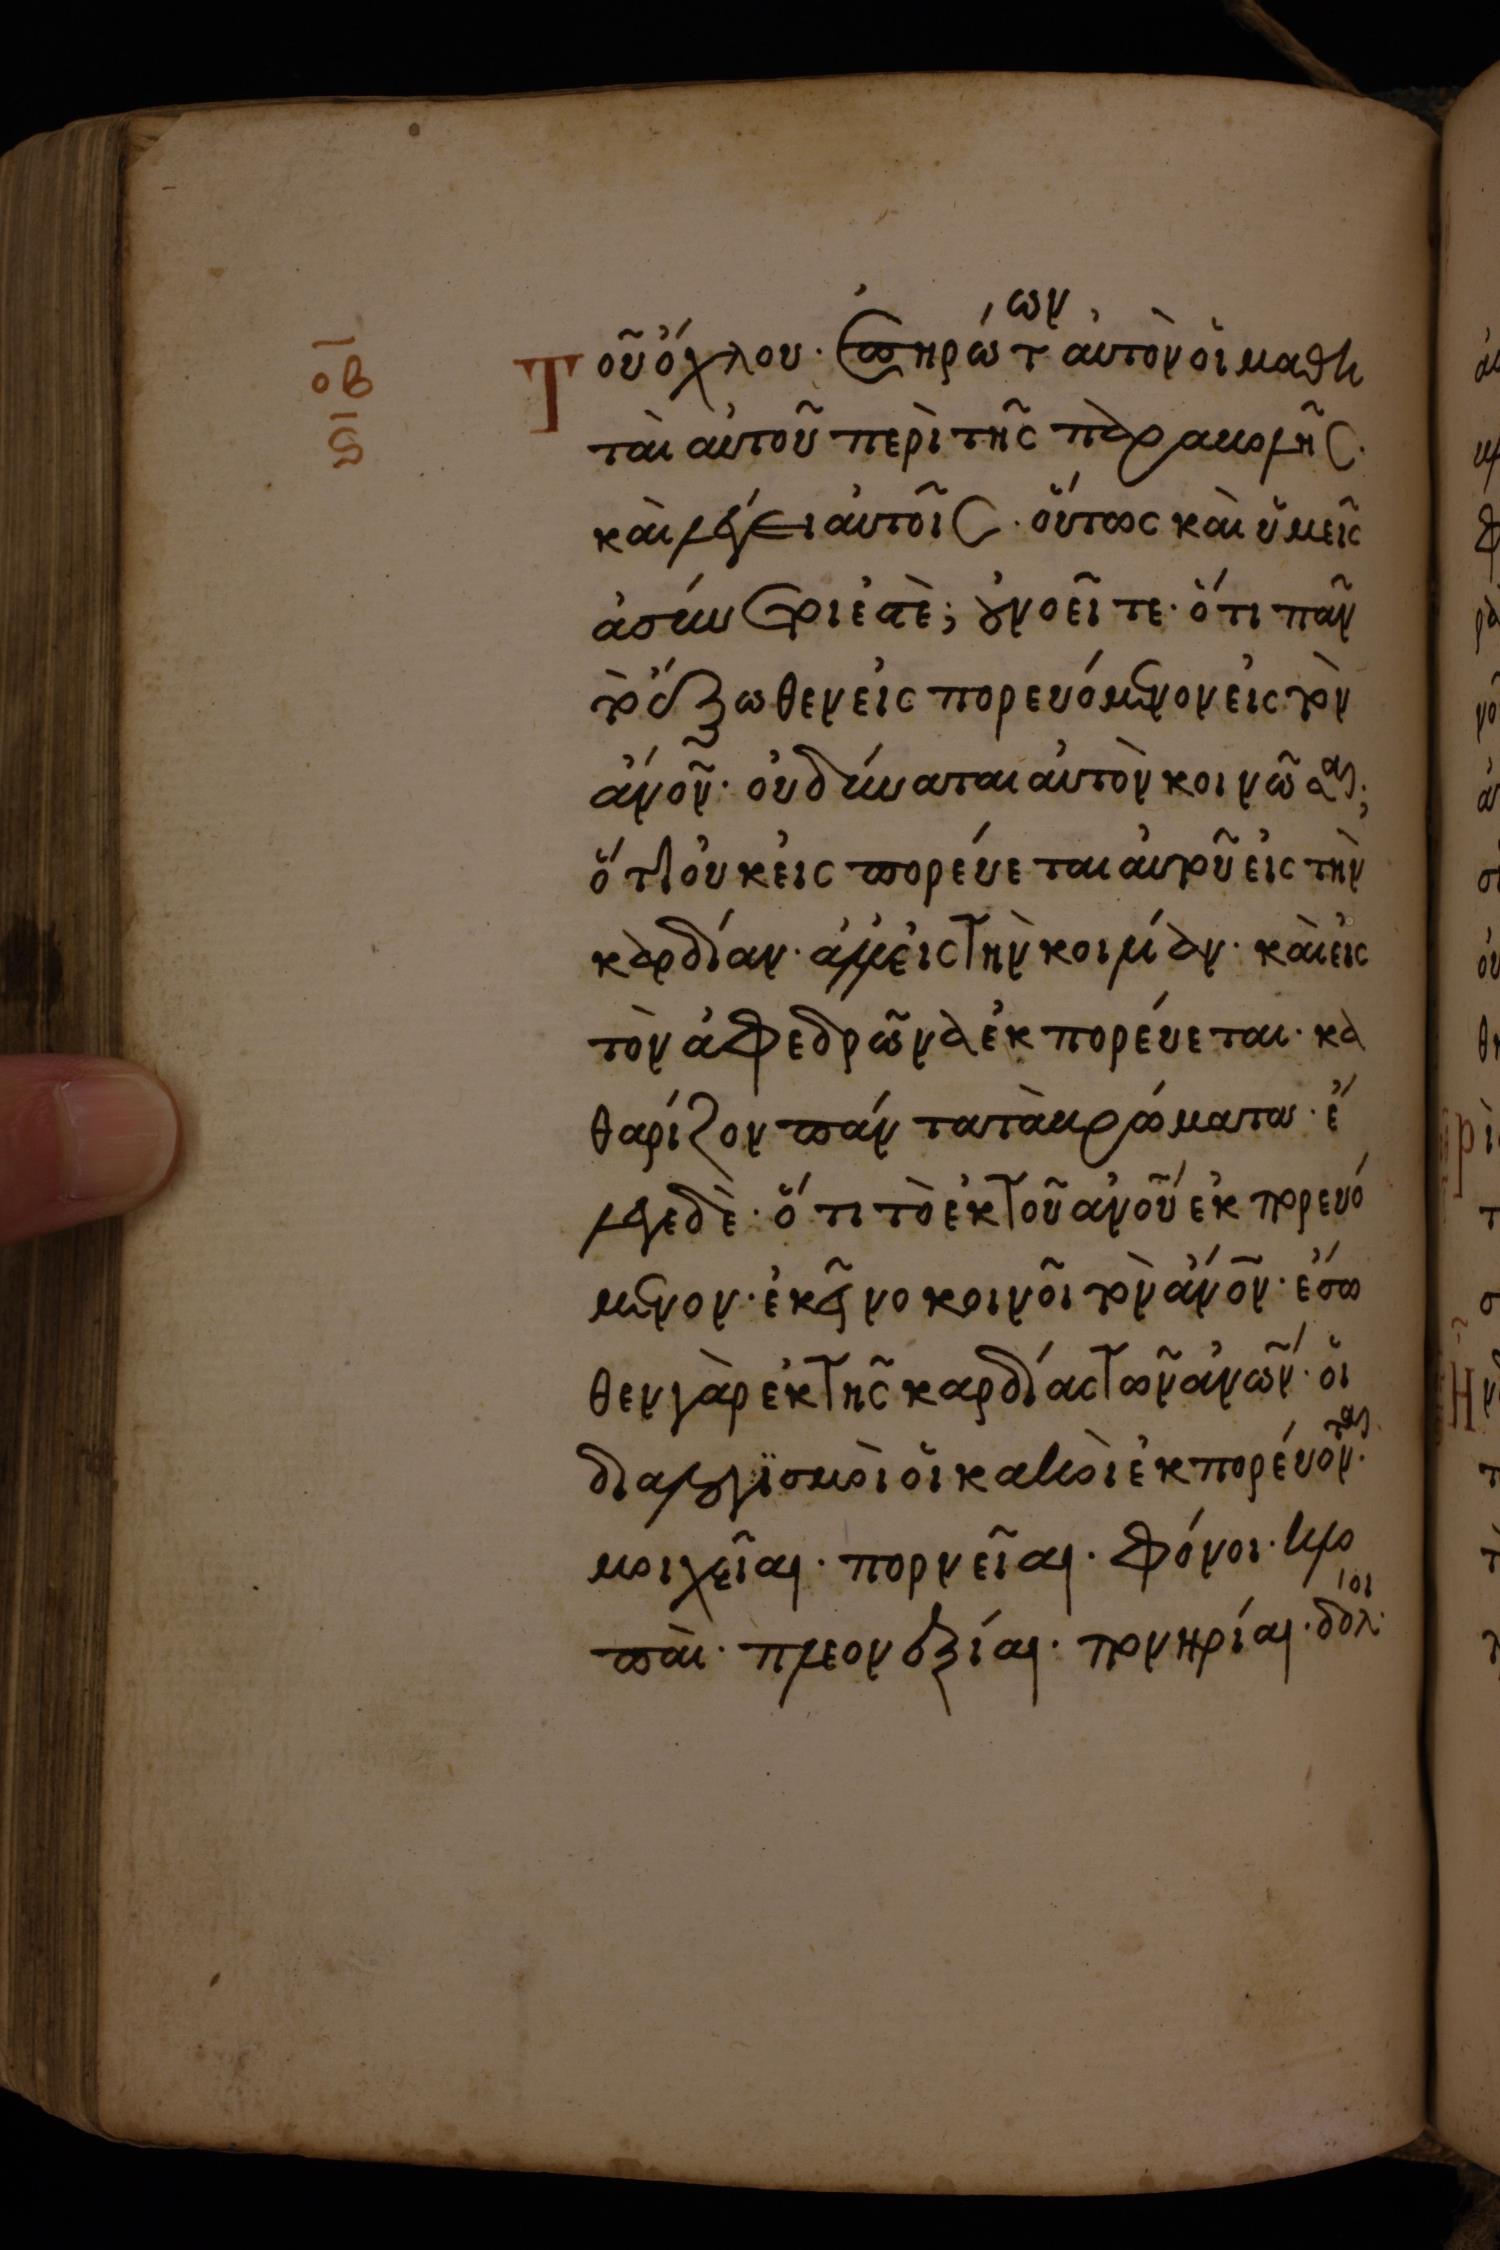 οβ
ς
Τοῦ ὄχλου· ἐπηρώτων αὐτὸν οἱ μαθη
ταὶ αὐτοῦ περὶ τῆς παραβολῆς·
καὶ λέγει αὐτοῖς· οὕτως καὶ ὑμεῖς
ἀσύνετοί ἐστὲ; οὐ νοεῖτε· ὅτι πᾶν
τὸ ἔξωθεν εἰσπορευόμενον εἰς τὸν
ἄνον· οὐ δύναται αὐτὸν κοινῶσαι;
ὅτι οὐκ εἰσπορεύεται αὐτοῦ εἰς τὴν
καρδίαν· ἀλλ' εἰς τὴν κοιλίαν· καὶ εἰς
τὸν ἀφεδρῶνα ἐκπορεύεται· κα
θαρίζον πάντα τὰ βρώματα· ἔ
λεγε δὲ· ὅτι τὸ ἐκ τοῦ ἀνοῦ ἐκπορευό
μενον· ἐκεῖνο κοινοῖ τὸν ἄνον· ἔσω
θεν γὰρ ἐκ τῆς καρδίας τῶν ἀνων· οἱ
διαλογϊσμοὶ οἱ κακοὶ ἐκπορεύονται·
μοιχεῖαι· πορνεῖαι· φόνοι· κλο
παὶ· πλεονεξίαι· πονηρίαι· δόλοι·